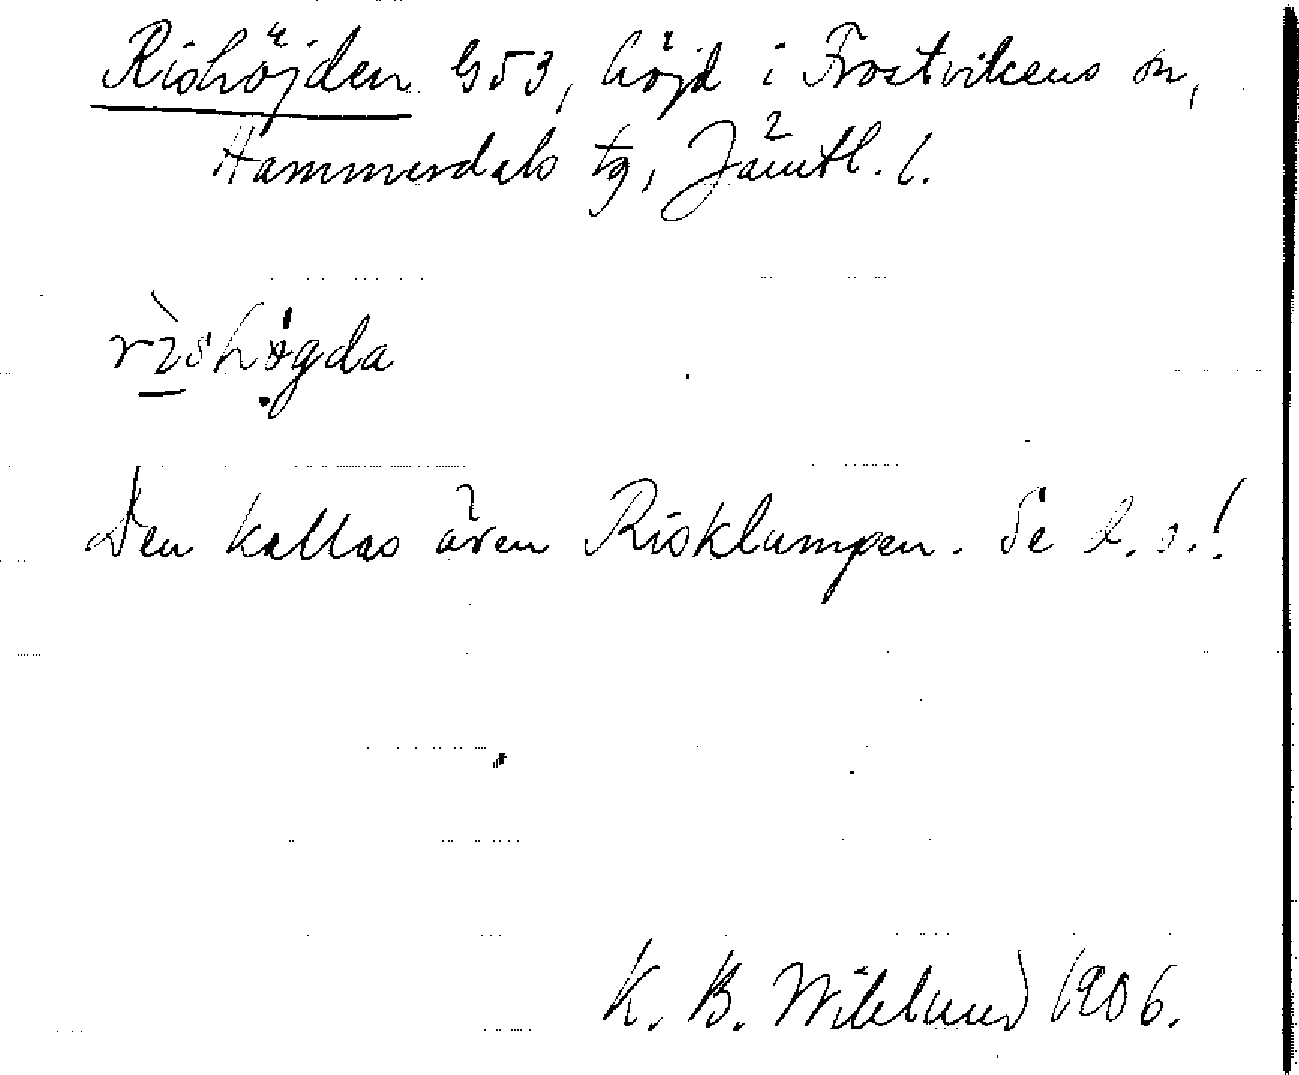 Rishöjden G53, höjd i Frostvikens sn,
Hammerdals tg, Jämtl. l.
rìshøgda
Den kallas även Risklumpen. Se d. o.!
K. B. Wiklund 1906.